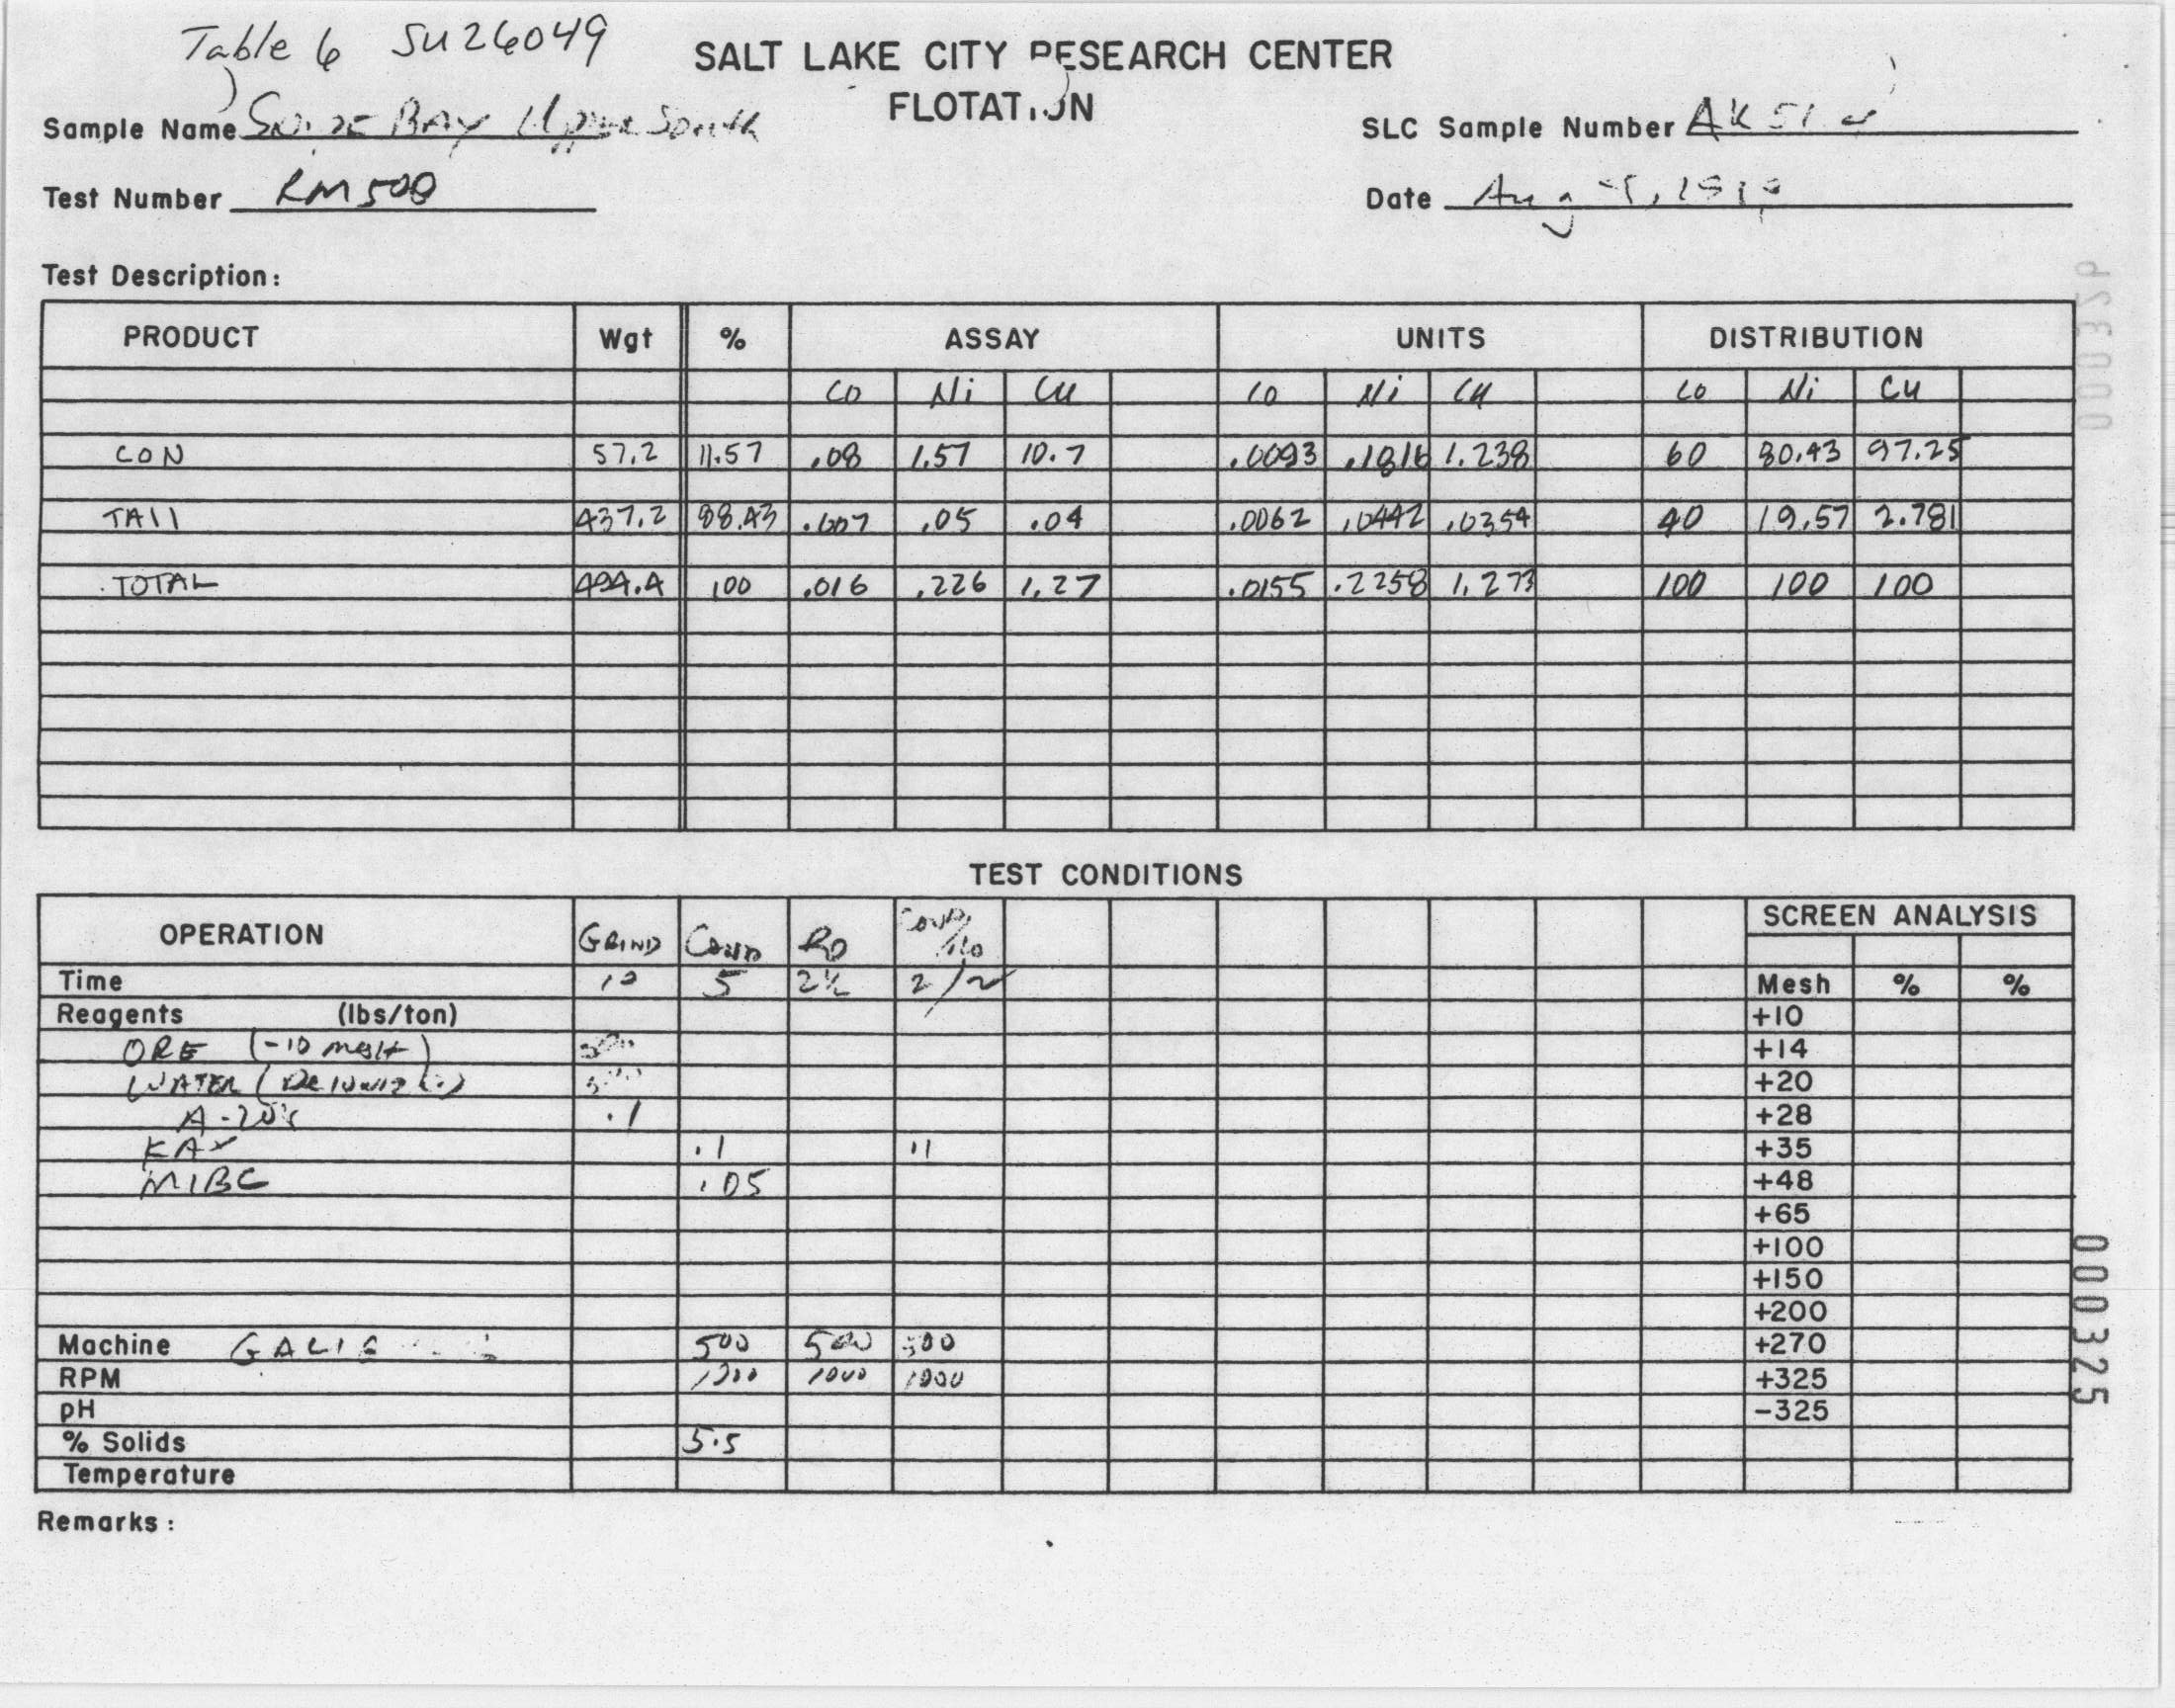 Table 6 SU26049
SALT LAKE CITY RESEARCH CENTER
FLOTATION
Sample Name BAY Upper South
SLC Sample Number
Test Number RM500
Date Aug
Test Description:
PRODUCT Wgt % ASSAY UNITS DISTRIBUTION
Co Ni Cu Co Ni Cu Co Ni Cu
CON 57.2 11.57 .08 1.57 10.7 .0093 .1816 1.238 60 80.43 97.25
TAIl 437.2 88.43 .007 .05 .04 .0062 .0442 .0354 40 19.57 2.781
TOTAL 494.4 100 .016 .226 1.27 .0155 .2258 1.273 100 100 100
TEST CONDITIONS
OPERATION GRIND COND RO COND/RO SCREEN ANALYSIS
Time 10 5 2½ 2/2 Mesh % %
Reagents (lbs/ton) +10
ORE (-10 mesh) +14
WATER (Deionized) +20
A-208 .1 +28
KAX .1 .1 +35
MIBC .05 +48
+65
+100
+150
+200
Machine 500 500 500 +270
RPM 1000 1000 +325
pH -325
% Solids 5.5
Temperature
Remarks:
000325